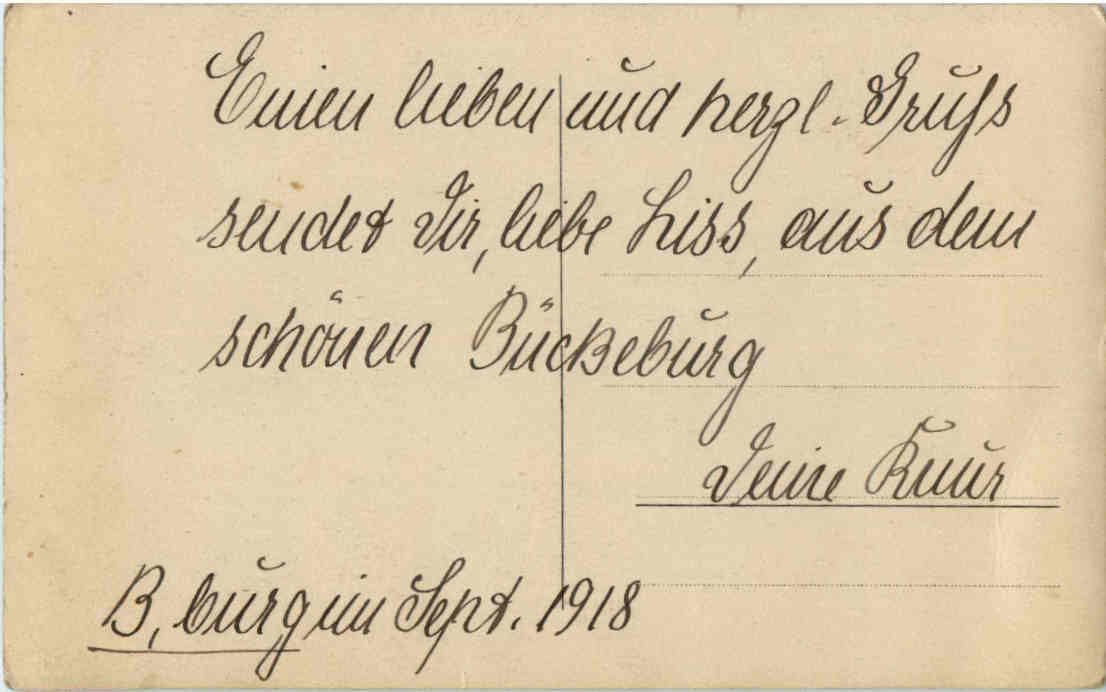 Einen lieben und herzl. Gruss
sendet Dir, liebe Liss, aus dem
schönen Bückeburg
Deine
B, burg im Sept. 1918